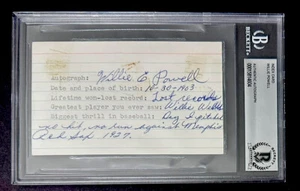 BECKETT
INDEX CARD
WILLIE POWELL
AUTHENTIC AUTOGRAPH
Autograph: Willie E. Powell
Date and place of birth: 10-30-1903
Lifetime won-lost record: Lost records
Greatest player you ever saw: Willie Wells
Biggest thrill in baseball: Day I pitched
no hit, no run against Memphis
Red Sox 1927.